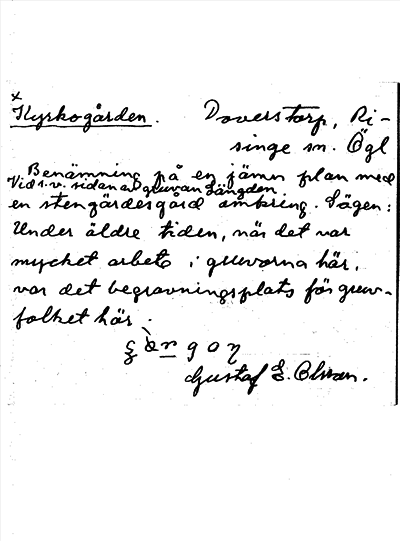 x
Kyrkogården. Doverstorp, Ri-
singe sn. Ögl
Benämning på en jämn plan med
Vid s.v. sidan av gruvan Längden
en stengärdesgård omkring. Sägen:
Under äldre tiden, när det var
mycket arbete i gruvorna här,
var det begravningsplats för gruv-
folket här.
Gustaf E. Olsson.